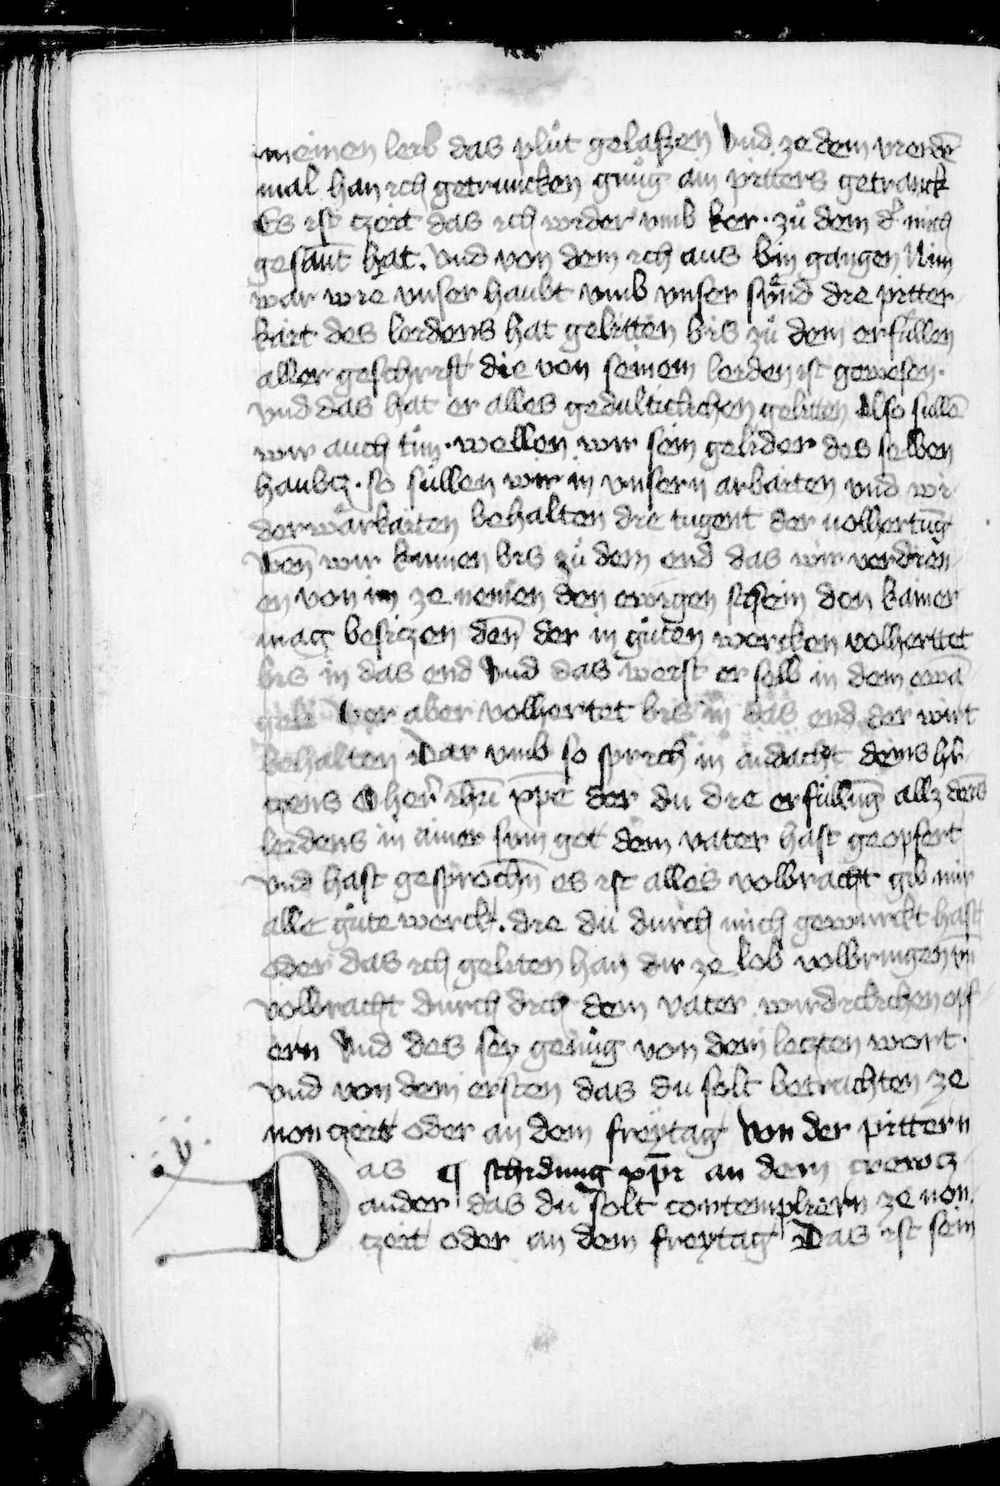 meinen leib das plůt gelaßen Vnd ze dem vierdē
mal han ich getruncken gnůg ain pitters getranck
Es ist czeit das ich wider vmb ker · zů dem d' mich
gesant hat. Vnd von dem ich aus bin gangen Nim
war wie vnser haubt vmb vnser sünd die pitter
kait des leidens hat gelitten bis zů dem erfüllen
aller geschrift die von seinem leiden ist gewesen ·
vnd das hat er alles gedultickichen gelitten Also süllē
wir auch tůn · wellen wir sein gelider des selben
haubtz · so süllen wir in vnsern arbaiten vnd wi
derwärkaiten behalten die tugent der volhertūg
Wen̄ wir kumen bis zů dem end das wir verdien
en von im ze nemen den ewigen schein den kainer
mag besiczen den̄ der in gůten wercken volherttet
bis in das end Vnd das weist er selb in dem ewā
geli Wer aber volhertet bis in das end der wirt
behalten Dar vmb so sprich in andacht deins hr
czens O her̄ ih̄u xp̄e der du die erfüllūg allz deins
leidens in ainer sum got dem vater hast geopfert
vnd hast gesprochn̄ es ist alles volbracht gib mir
alle gůte werck. die du durch mich gewurckt hast
oder das ich geliten han dir ze lob volbringen vn̄
volbracht durch dich dem vater wirdickichen opf
ern Vnd des sey genůg von dem leczten wort ·
vnd von dem ersten das du solt betrachten ze
non czeit oder an dem freytag Von der pittern
v̈ ·
Das ¶ schidung xp̄i an dem crewcz
ander das du solt contempliern ze non
czeit oder an dem freytag Das ist sein